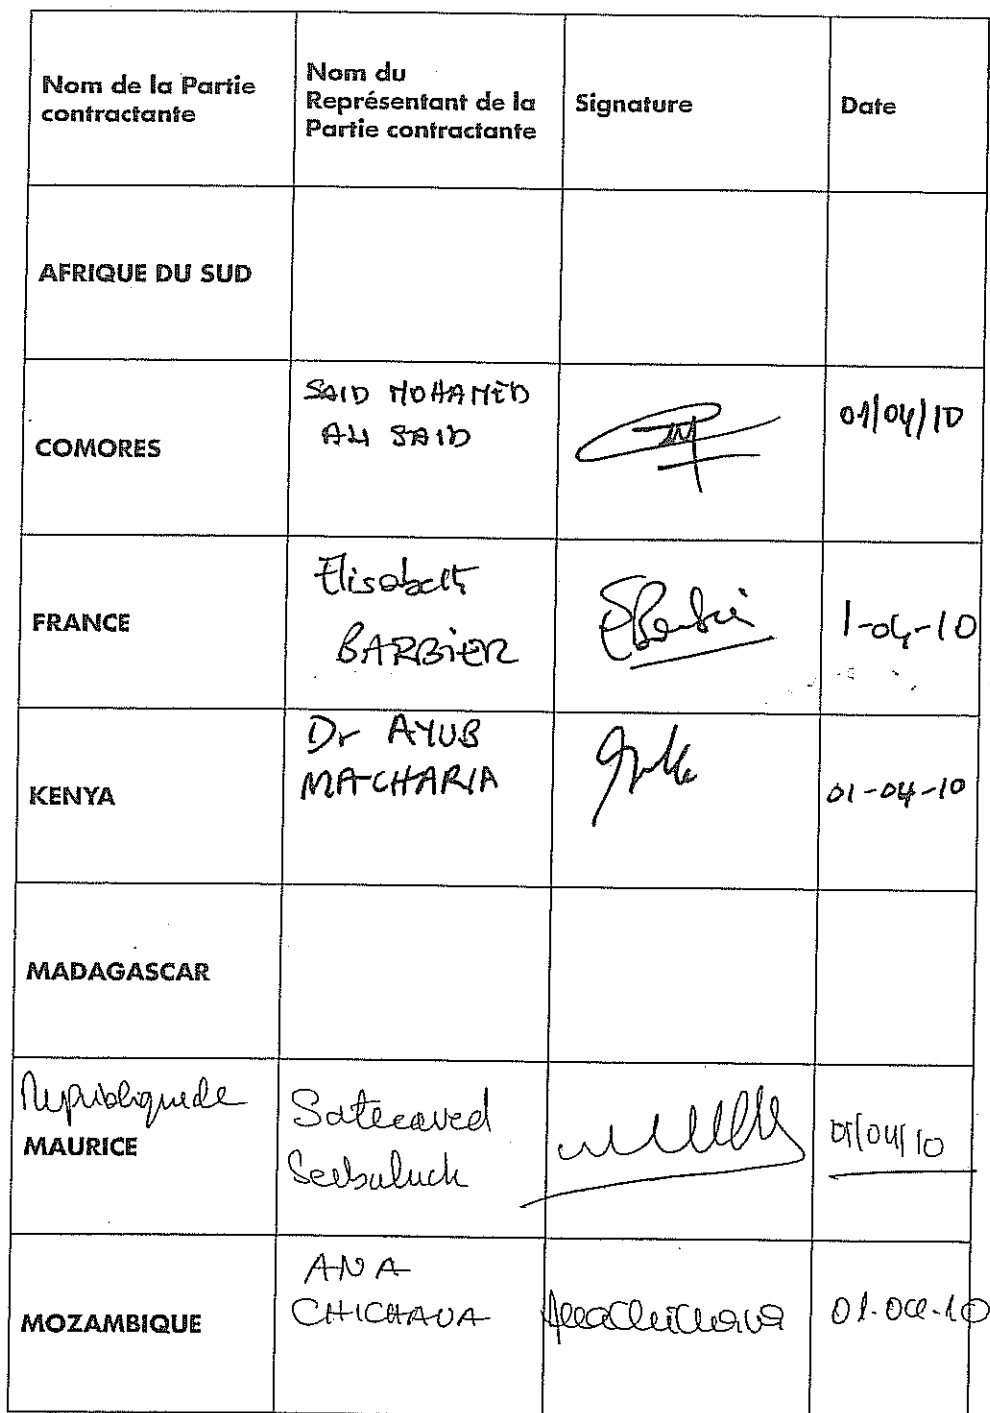 Nom de la Partie
contractante
Nom du
Représentant de la
Partie contractante
Signature
Date
AFRIQUE DU SUD
COMORES
SAID MOHAMED
ALI SAID
01/04/10
FRANCE
Elisabeth
BARBIER
EBarbier
1-04-10
KENYA
Dr AYUB
MACHARIA
01-04-10
MADAGASCAR
République de
MAURICE
Sateeaved
Seebaluck
01/04/10
MOZAMBIQUE
ANA
CHICHAVA
AnaChichava
01-04-10